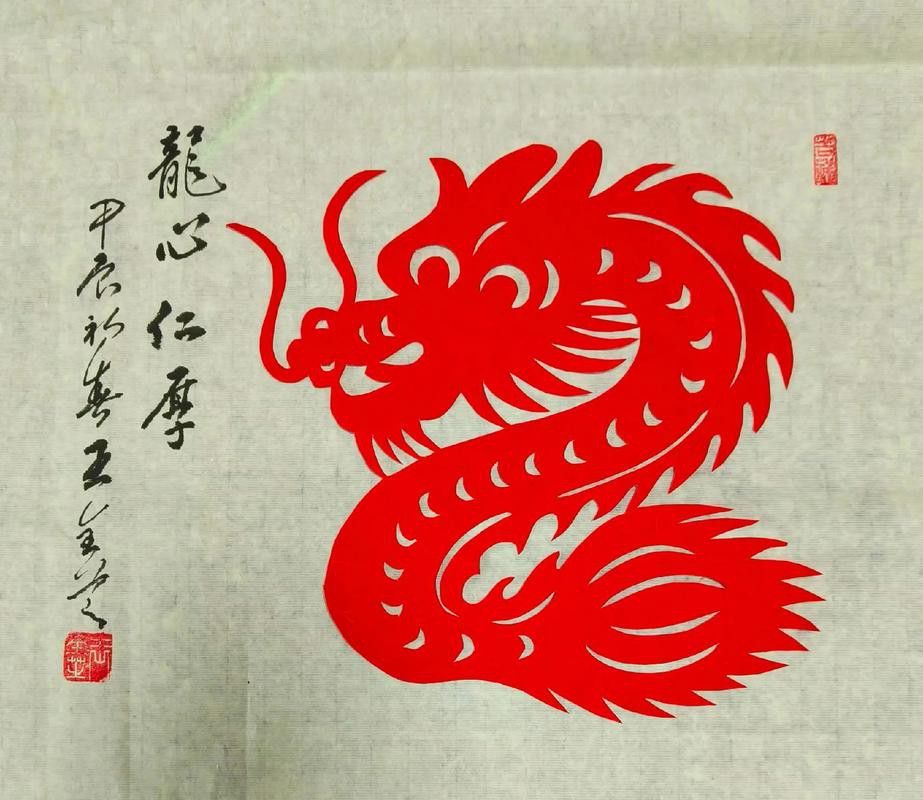 龍心仁厚
甲辰初春王